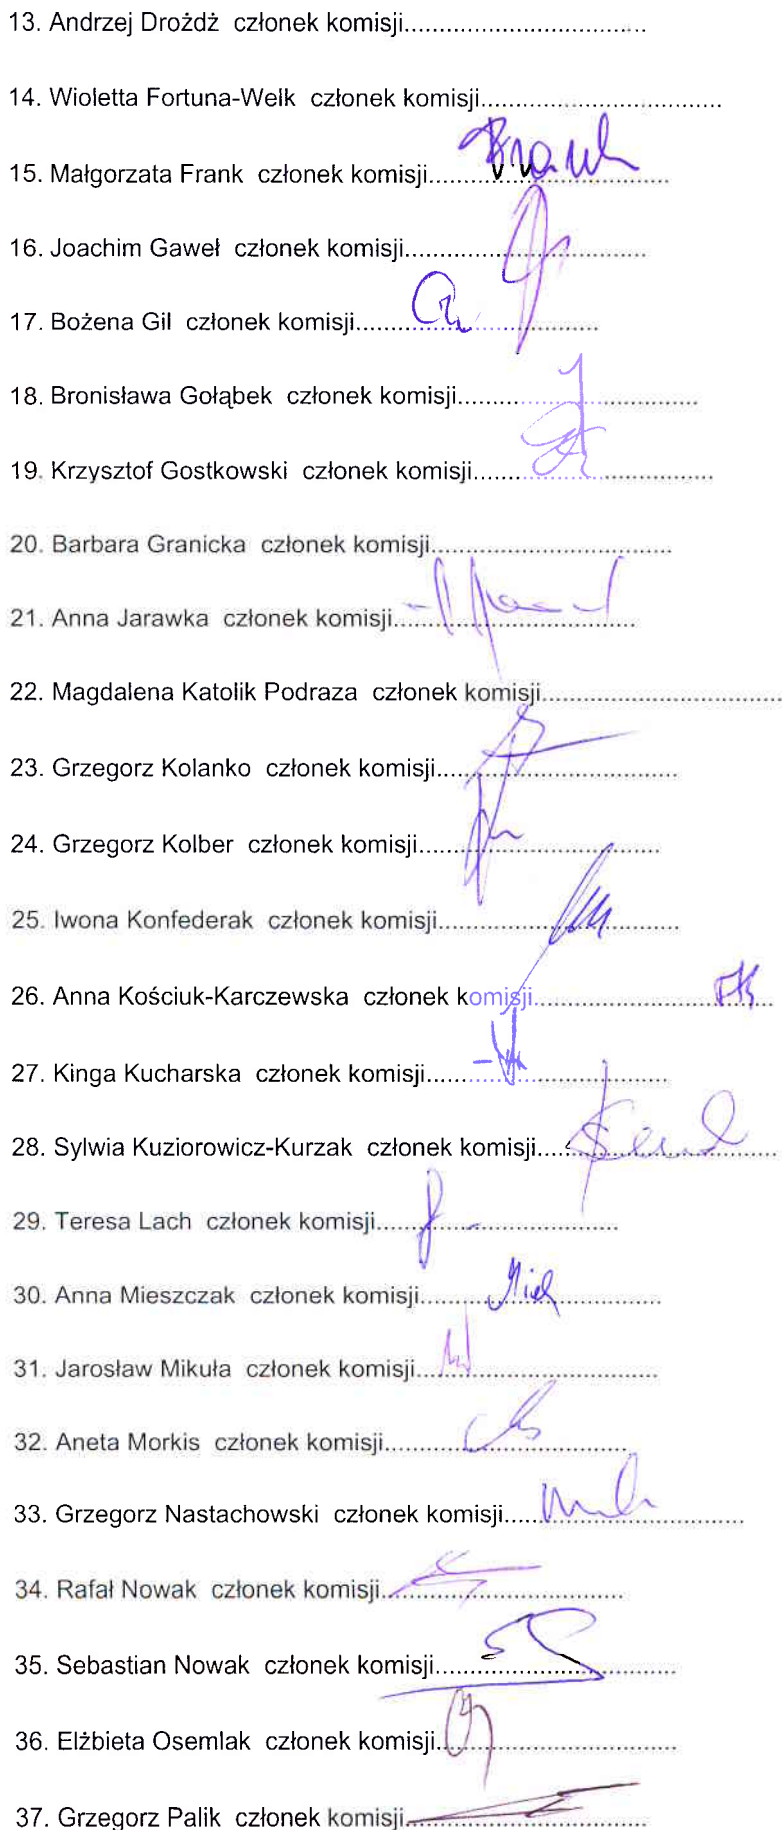 13. Andrzej Drożdż  członek komisji..................................
14. Wioletta Fortuna-Welk  członek komisji..................................
15. Małgorzata Frank  członek komisji.................................. Frank
16. Joachim Gaweł  członek komisji..................................
17. Bożena Gil  członek komisji..................................
18. Bronisława Gołąbek  członek komisji..................................
19. Krzysztof Gostkowski  członek komisji..................................
20. Barbara Granicka  członek komisji..................................
21. Anna Jarawka  członek komisji..................................
22. Magdalena Katolik Podraza  członek komisji..................................
23. Grzegorz Kolanko  członek komisji..................................
24. Grzegorz Kolber  członek komisji..................................
25. Iwona Konfederak  członek komisji..................................
26. Anna Kościuk-Karczewska  członek komisji..................................
27. Kinga Kucharska  członek komisji..................................
28. Sylwia Kuziorowicz-Kurzak  członek komisji..................................
29. Teresa Lach  członek komisji..................................
30. Anna Mieszczak  członek komisji..................................
31. Jarosław Mikuła  członek komisji..................................
32. Aneta Morkis  członek komisji..................................
33. Grzegorz Nastachowski  członek komisji..................................
34. Rafał Nowak  członek komisji..................................
35. Sebastian Nowak  członek komisji..................................
36. Elżbieta Osemlak  członek komisji..................................
37. Grzegorz Palik  członek komisji..................................